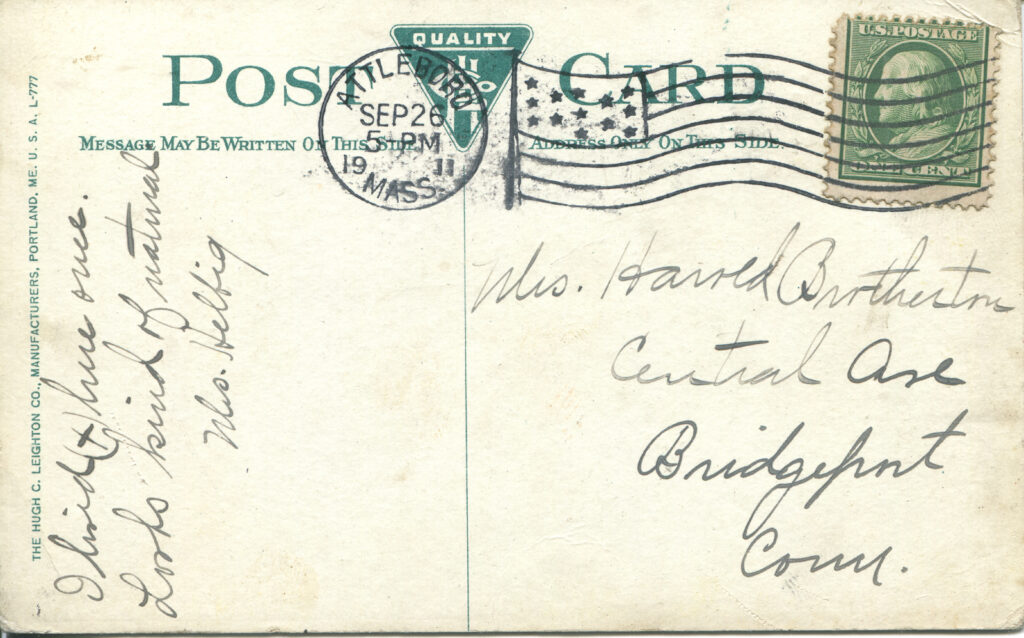 QUALITY
POST CARD
ATTLEBORO
SEP 26
5 PM
19 11
MASS.
U.S. POSTAGE
ONE CENT
MESSAGE MAY BE WRITTEN ON THIS SIDE.
ADDRESS ONLY ON THIS SIDE.
THE HUGH C. LEIGHTON CO., MANUFACTURERS, PORTLAND, ME. U. S. A. L-777
I lived (x) here once.
Looks kind of natural
Mrs. Helbig
Mrs. Harold Brotherton
Central Ave
Bridgeport
Conn.